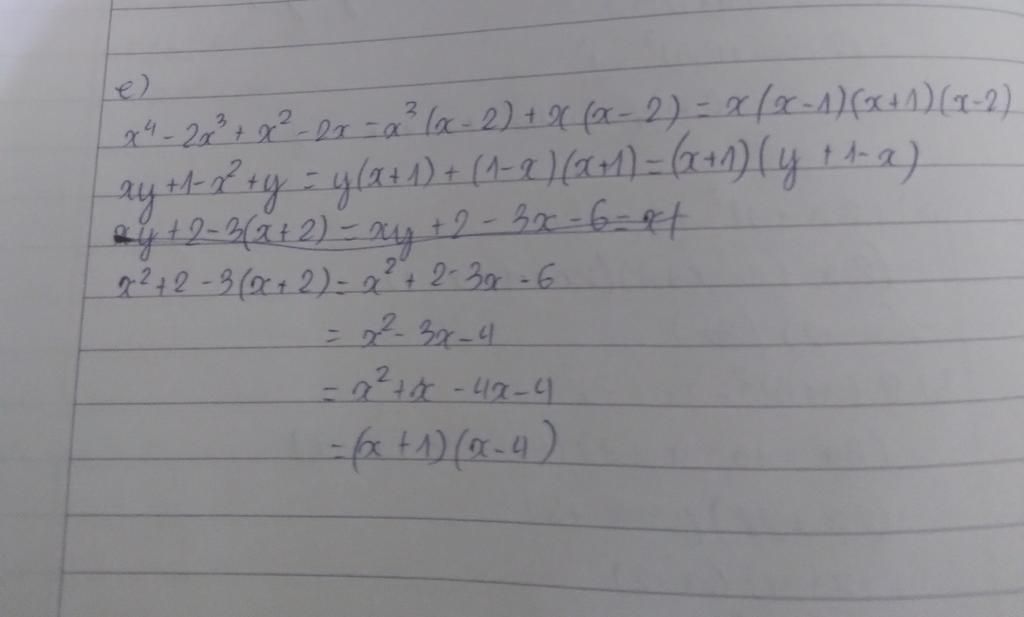 e)
x⁴ - 2x³ + x² - 2x = x³(x - 2) + x(x - 2) = x(x - 1)(x + 1)(x - 2)
xy + 1 - x² + y = y(x + 1) + (1 - x)(x + 1) = (x + 1)(y + 1 - x)
xy + 2 - 3(x + 2) = xy + 2 - 3x - 6 =
x² + 2 - 3(x + 2) = x² + 2 - 3x - 6
= x² - 3x - 4
= x² + x - 4x - 4
= (x + 1)(x - 4)